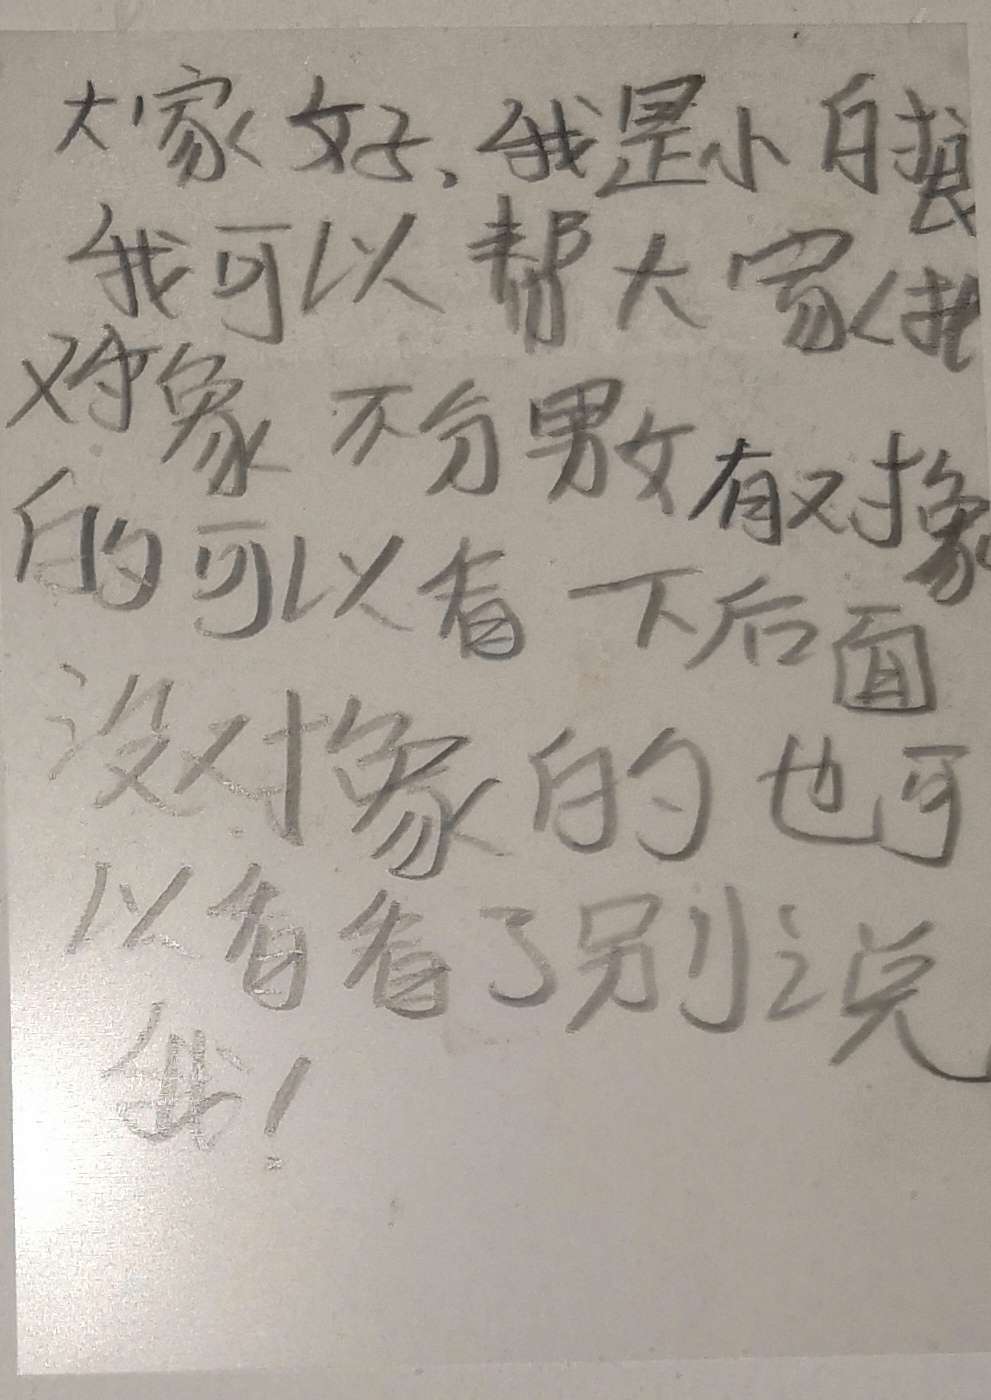 大家好,我是小白
我可以帮大家找
对象 不分男女有对象
的可以看一下后面
没对象的也可
以看看了别说
我!